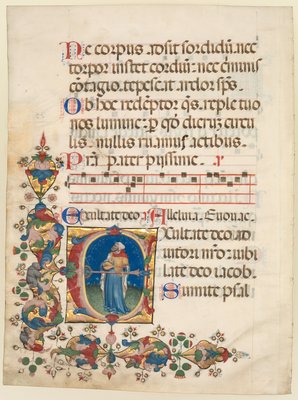 Ne corpus adsit sordidū. nec
torpor instet cordiū: nec c̄minis
ɔtagio. tepescat ardor sp̄s.
Ob hoc redēptor q̄s. reple tuo
nos lumine: p̱ q̄ dierū circu
lis. nullis ruamus actibus.
Pr̄a pater pijssime. ℣
Exultate deo a̓ Alleluia. Euouae.
Exultate deo ad
iutori nr̄o: iubi
late deo iacob.
Sumite psal